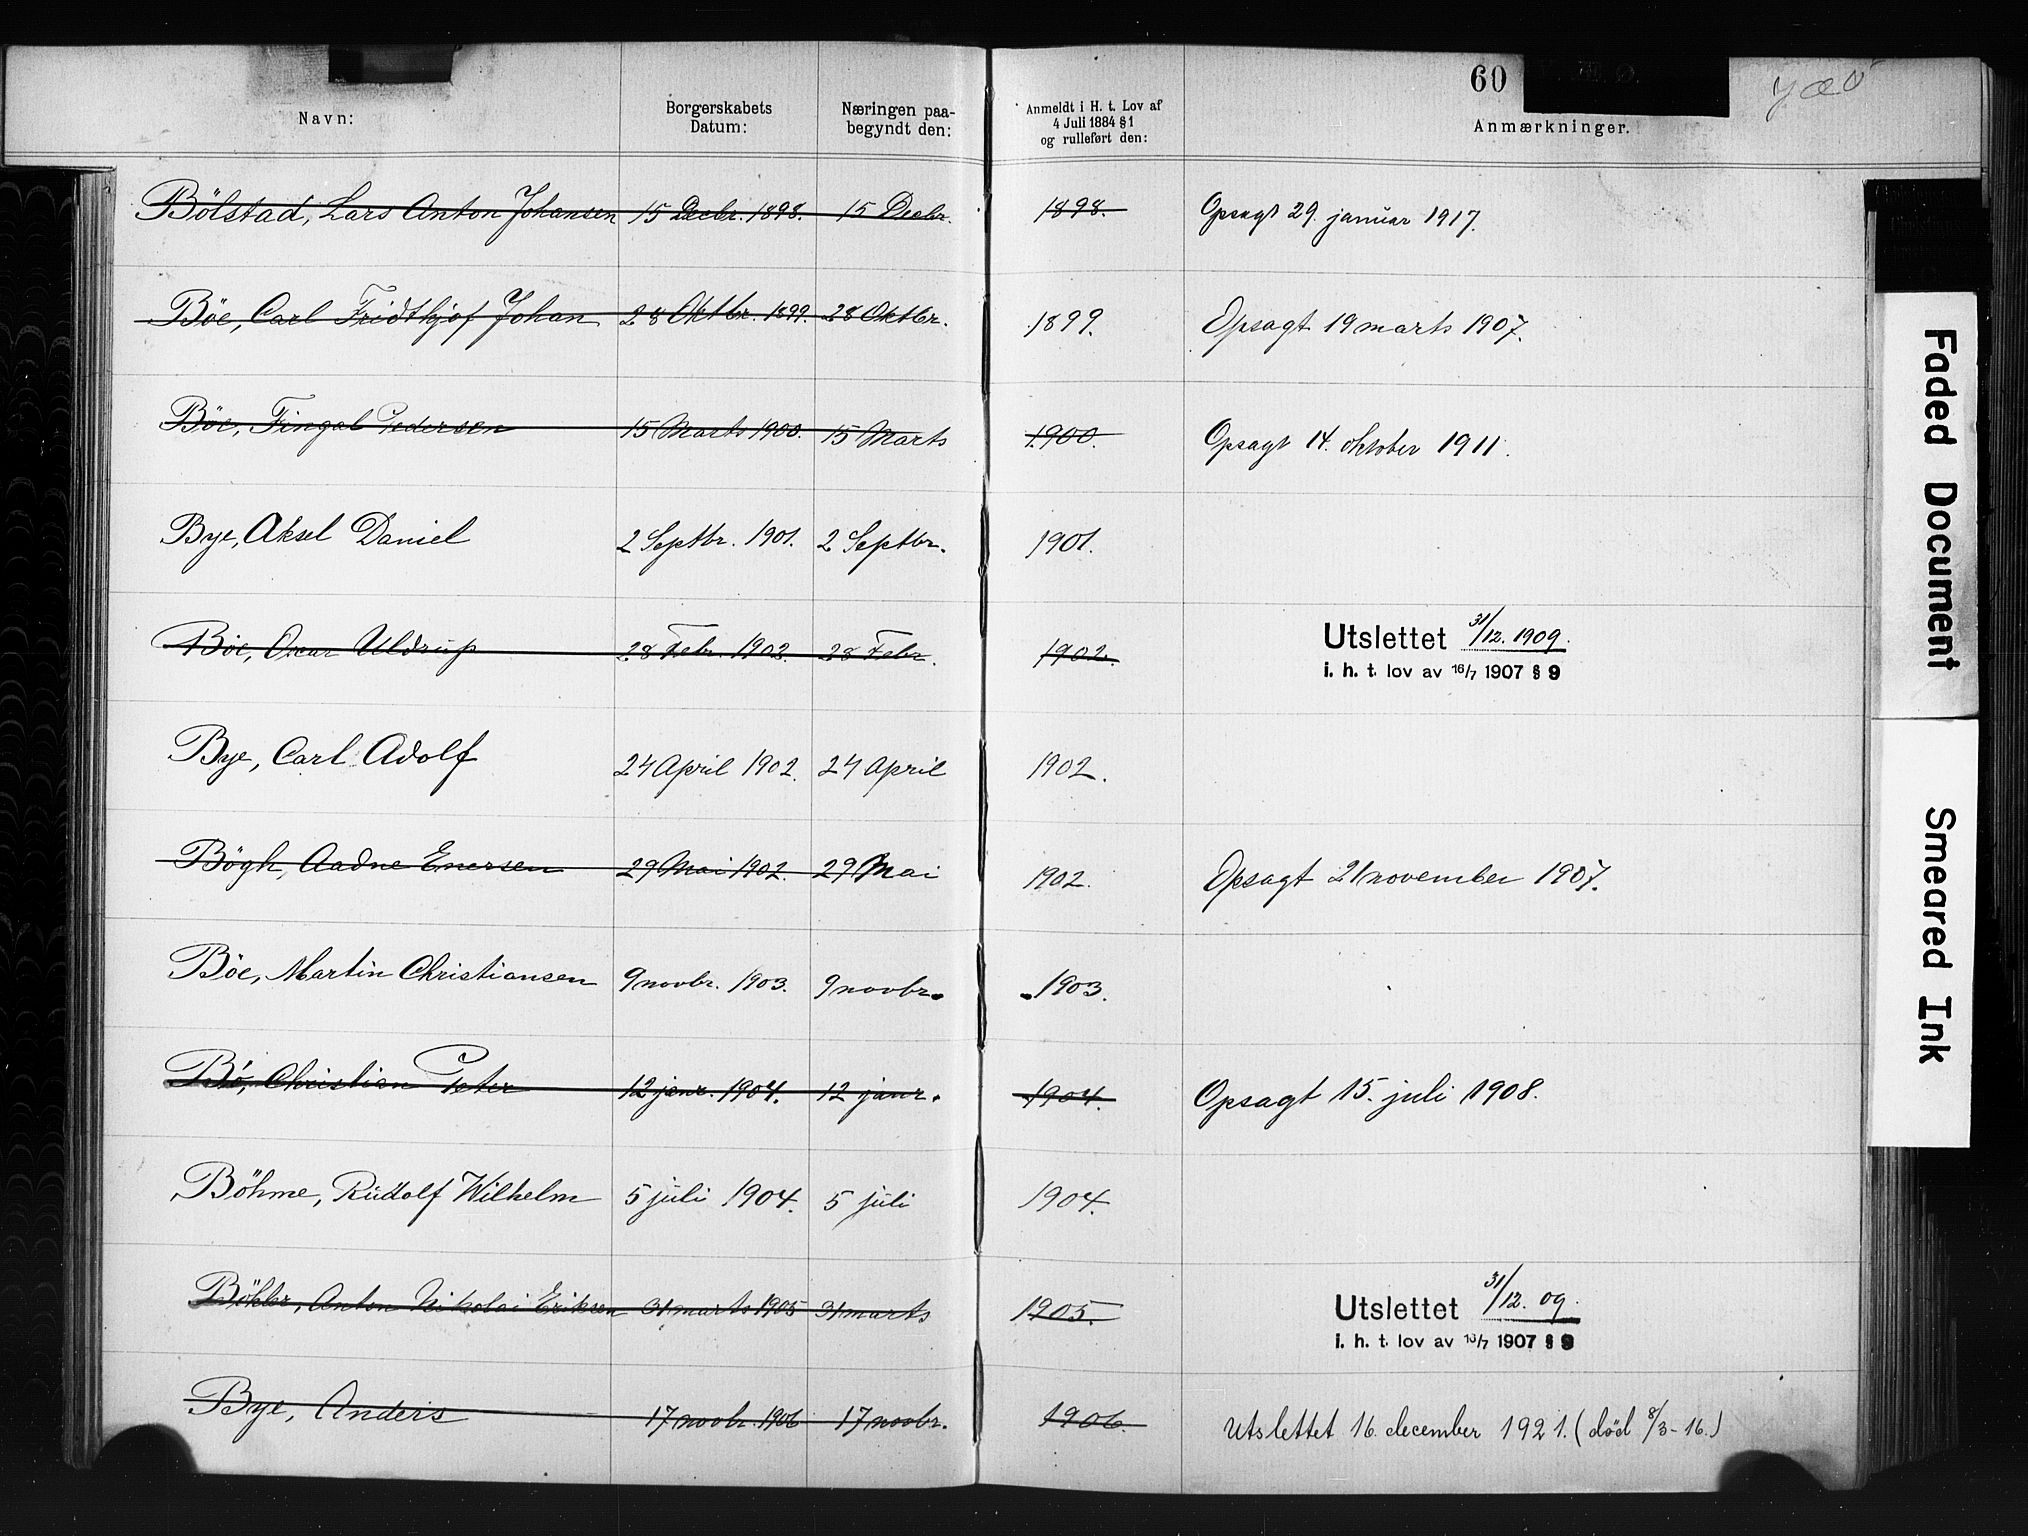 60
yæö
Navn: Borgerskabets Datum: Næringen paa-begyndt den: Anmeldt i H. t. Lov af 4 Juli 1884 § 1 og rulleført den: Anmærkninger.
Bölstad, Lars Anton Johansen 15 Decbr. 1898. 15 Decbr. 1898. Opsagt 29. januar 1917.
Böe, Carl Fridthjof Johan 28 Oktbr. 1899. 28 Oktbr. 1899. Opsagt 19 marts 1907.
Böe, Fingal Pedersen 15 Marts 1900. 15 Marts 1900. Opsagt 14. oktober 1911.
Bye, Aksel Daniel 2 Septbr. 1901. 2 Septbr. 1901.
Böe, Oscar Uldrup 28 Febr. 1902. 28 Febr. 1902. Utslettet 31/12. 1909.
i. h. t. lov av 16/7 1907 § 9
Bye, Carl Adolf 24 April 1902. 24 April 1902.
Bögh, Aadne Enersen 29 Mai 1902. 29 Mai 1902. Opsagt 21 november 1907.
Böe, Martin Christiansen 9 novbr. 1903. 9 novbr. 1903.
Bö, Christian Peter 12 janr. 1904. 12 janr. 1904. Opsagt 15. juli 1908.
Böhme, Rudolf Wilhelm 5 juli 1904. 5 juli 1904.
Böhler, Anton Nikolai Eriksen 31 marts 1905 31 marts 1905. Utslettet 31/12. 09.
i. h. t. lov av 16/7 1907 § 9
Bye, Anders 17 novbr. 1906 17 novbr. 1906. Utslettet 16. december 1921. (död 8/3-16.)
Faded Document
Smeared Ink